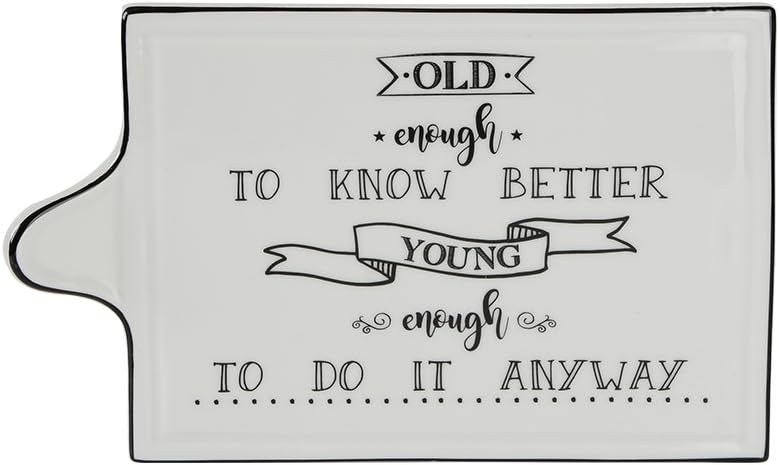 OLD
enough
TO KNOW BETTER
YOUNG
enough
TO DO IT ANYWAY